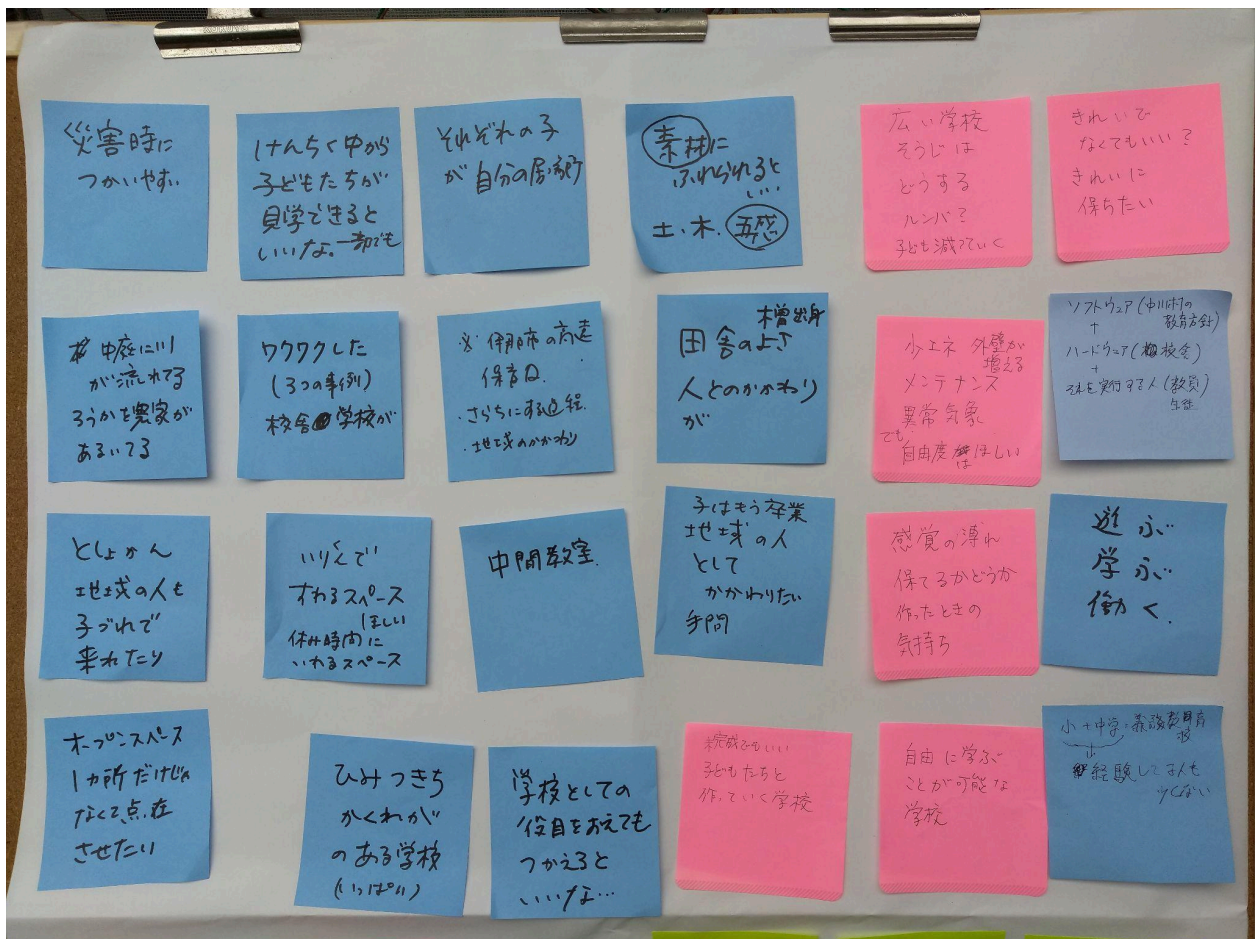 災害時に
つかいやすい
けんちく中から
子どもたちが
見学できると
いいな。一部でも
それぞれの子
が自分の居場所
素材に
ふれられると
いい
土・木. 五感
広い学校
そうじは
どうする
ルンバ?
子ども減っていく
きれいで
なくてもいい?
きれいに
保ちたい
中庭に川
が流れてる
ろうかを農家が
あるいてる
ワクワクした
(3つの事例)
校舎 学校が
※伊那市の高遠
保育園.
・さらちにする過程.
・地域のかかわり
木曽出身
田舎のよさ
人とのかかわり
が
少エネ 外壁が
増える
メンテナンス
異常気象
でも
自由度はほしい
ソフトウェア(中川村の
教育方針)
+
ハードウェア(校舎)
+
それを実行する人(教員)
生徒
としょかん
地域の人も
子づれで
来れたり
いりくんで
すわるスペース
ほしい
休み時間に
いれるスペース
中間教室.
子はもう卒業
地域の人
として
かかわりたい
学問
感覚の薄れ
保てるかどうか
作ったときの
気持ち
遊ぶ
学ぶ
働く.
オープンスペース
1ヵ所だけじゃ
なくて点在
させたい
ひみつきち
かくれがが
のある学校
(いっぱい)
学校としての
役目をおえても
つかえると
いいな…
未完成でもいい
子どもたちと
作っていく学校
自由に学ぶ
ことが可能な
学校
小+中学=義務教育
校
経験してる人も
少くない